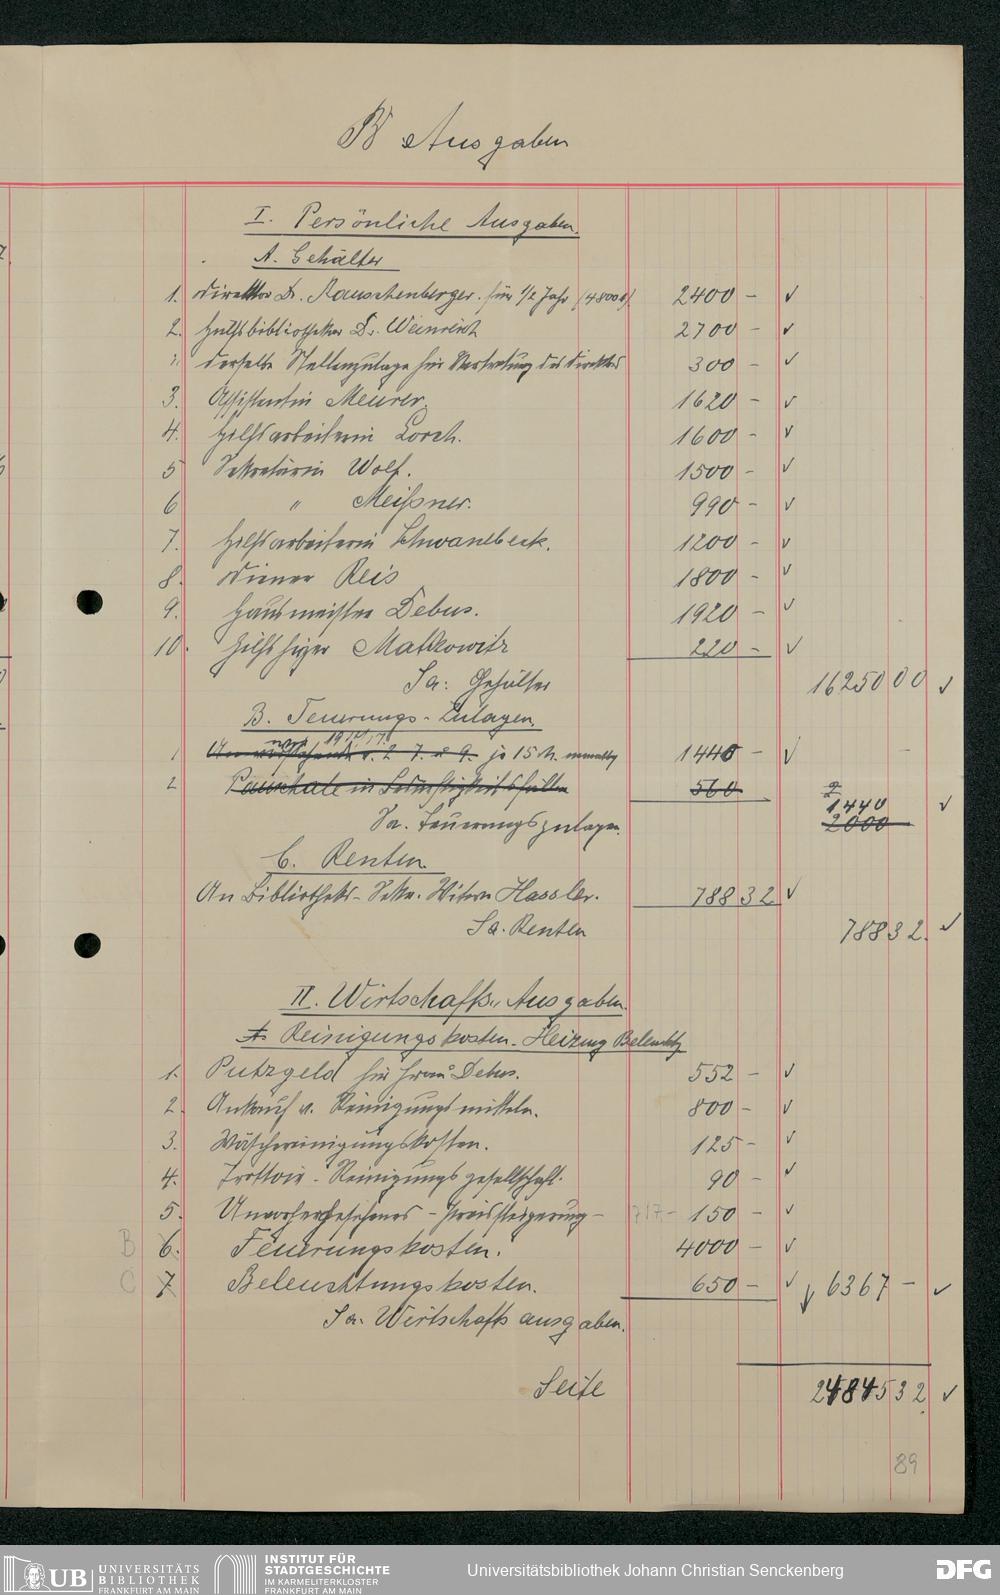 B Ausgaben
I. Persönliche Ausgaben.
A. Gehälter
1. Direktor Dr. Rauschenberger. für 1/2 Jahr (4800 2400 – √
2. Hülfsbibliothekar Dr. Weinreich 2700 – √
" derselbe Stellenzulage für Vertretung des Direktors 300 – √
3. Assistentin Meurer. 1620 – √
4. Hilfsarbeiterin Lorch. 1600 – √
5 Sekretärin Wolf. 1500 – √
6 " Meißner. 990 – √
7. Hilfsarbeiterin Schwanebeck. 1200 – √
8. Diener Reis 1800 – √
9. Hausmeister Debus. 1920 – √
10. Hilfsheizer Matkowitz 220 – √
Sa: Gehälter 16250 00 √
B. Teuerungs-Zulagen.
1 je 15 M. monatlich 1440 – √
2 Pauschale in Bedürftigkeitsfällen 560
1440 √
2000
Sa. Teuerungszulagen
C. Renten.
An Bibliotheks-Sekr. Witwe Hassler. 788 32 √
Sa. Renten 788 32. √
II. Wirtschafts-Ausgaben.
A. Reinigungskosten. Heizung Beleuchtg
1. Putzgeld für Frau Debus. 552 – √
2. Ankauf v. Reinigungsmitteln. 800 – √
3. Wäschereinigungskosten. 125 – √
4. Trottoir-Reinigungsgesellschaft. 90 – √
5. Unvorhergesehenes – Preissteigerung – 717 – 150 – √
B 6. Feuerungskosten. 4000 – √
C 7 Beleuchtungskosten. 650 – √ 6367 – √
Sa. Wirtschaftsausgaben.
Seite 24845 32 √
89
UB UNIVERSITÄTS
BIBLIOTHEK
FRANKFURT AM MAIN
INSTITUT FÜR
STADTGESCHICHTE
IM KARMELITERKLOSTER
FRANKFURT AM MAIN
Universitätsbibliothek Johann Christian Senckenberg
DFG